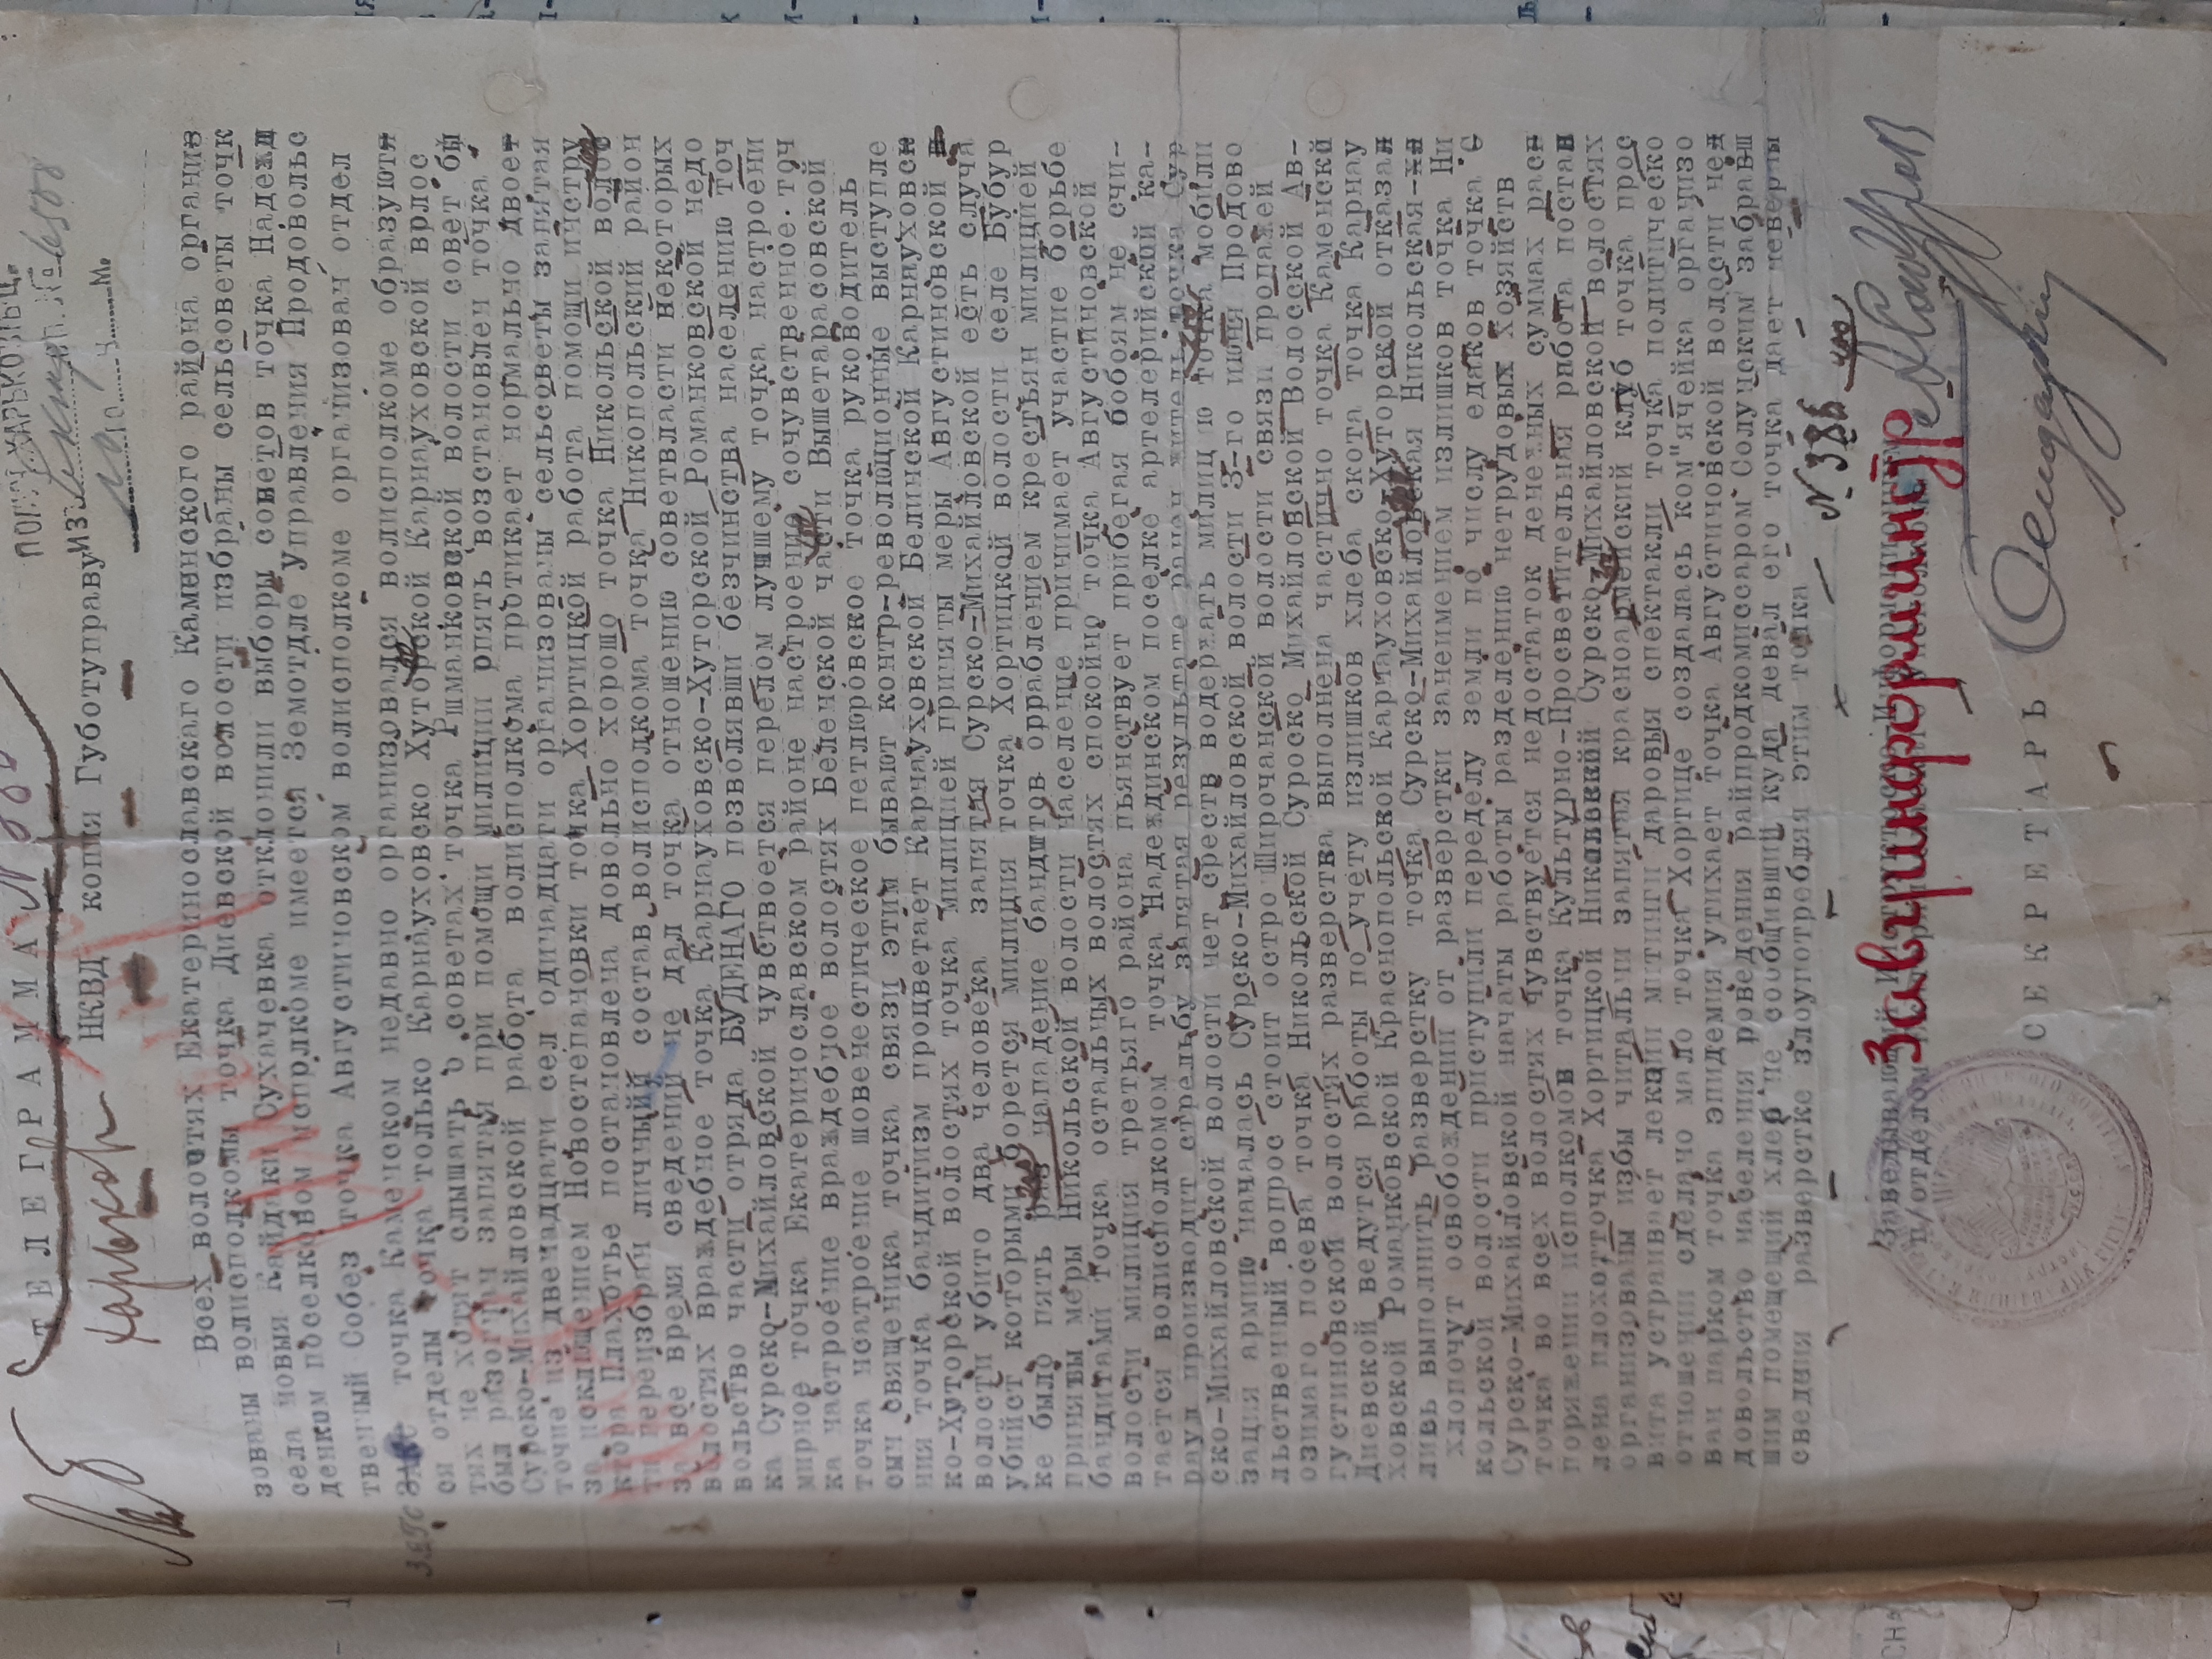 ТЕЛЕГРАММА
Харьков
НКВД копия Губотуправу
ПОЛУЧ. ХАРЬКОВЫЦ.
из
Всех волостях Екатеринославскаго Каменского района организ
зованы волисполкомы точка Диевской волости избраны сельсоветы точк
села новыя Кайдаки Сухачевка отклонили выборы советов точка Надежд
денком поселковом исрлкоме имеется Земотдле Управления Продовольс
твенный Собез точка Августиновском волисполкоме организован отдел
ЗАГС точка Каменском недавно организовался волисполкоме образуютя
ся отделы точка только Карнауховско Хуторской Карнауховской врлос
тях не хотят слышать о советах точка Ршманковской волости совет бы
был разогнан запятая при помощи милиции рпять возстановлен точка
Сурско-Михайловской работа волисполкома протикает нормально двоет
точие из двенадцати сел одинадцати организованы сельсоветы запятая
за исключением Новостепановки точка Хортицкой работа помощи инстру
ктора Плахотье постановлена довольно хорошо точка Никольской волос
ти переизбран личный состав волисполкома точка Никопольский район
за все время сведений не дал точка отношению советвласти некоторых
волостях враждебное точка Карнауховско-Хуторской Романковской недо
вольство части отряда БУДЕНАГО позволявши безчинства населению точ
ка Сурско-Михайловской чувствоется перелом лучшему точка настроени
мирное точка Екатеринославском районе настроение сочувственное точ
ка настроение враждебное волостях Беленской части Вышетарасовской
точка настроение шовенестическое петлюровское точка руководитель
сын священика точка связи этим бывают контр-революционные выступле
ния точка бандитизм процветает Карнауховской Белинской Карнауховск
ко-Хуторской волостях точка милицией приняты меры Августиновской
волости убито два человека запятя Сурско-Михайловской есть случа
убийст которыми борется милиция точка Хортицкой волости селе Бубур
ке было пять раз нападение бандитов орраблением крестьян милицией
приняты меры Никольской волости население принимает участие борьбе
бандитами точка остальных волостях спокойно точка Августиновской
волости милиция третьяго района пьянствует прибегая побоям не счи-
тается волисполкомом точка Надеждинском поселке артелерийской ка-
раул производит стрельбу запятая результате ранен житель точка Сур
ско-Михайловской волости нет среств водержать милиц ю точка мобили
зация армию началась Сурско-Михайловской волости 3-го июня Продово
льственный вопрос стоит остро Широчанской волости связи продажей
озимаго посева точка Никольской Суроско Михайловской Волосской Ав-
густиновской волостях разверства выполнена частично точка Каменской
Диевской ведутся работы по учету излишков хлеба скота точка Карнау
ховской Романковской Краснопольской Картауховско-Хуторской отказан
ливь выполнить разверстку точка Сурско-Михайловская Никольская
хлопочут освобождении от разверстки занеимением излишков точка Ни
кольской волости приступили переделу земли по числу едаков точка С
Сурско-Михайловской начаты работы разделению нетрудовых хозяйств
точка во всех волостях чувствуется недостаток денежных суммах расп
поряжении исполкомов точка Культурно-Просветительная работа постав
лена плохо точка Хортицкой Никольской Сурско Михайловской волостях
организованы избы читальни запятая красноармейский клуб точка прос
вита устраивает лекции митинги даровыя спектакли точка политическо
отношении сделано мало точка Хортице создалась ком"ячейка организо
ван парком точка эпидемия утихает точка Августиновской волости нед
довольство населения роведения райпродкомиссаром Солунским забравш
шим помещений хлер не сообщивший куда девал его точка дает неверны
сведния разверстке злоупотребляя этим точка
№ 386
Заведывающий
п/отделом
Завинформинстр
СЕКРЕТАРЬ